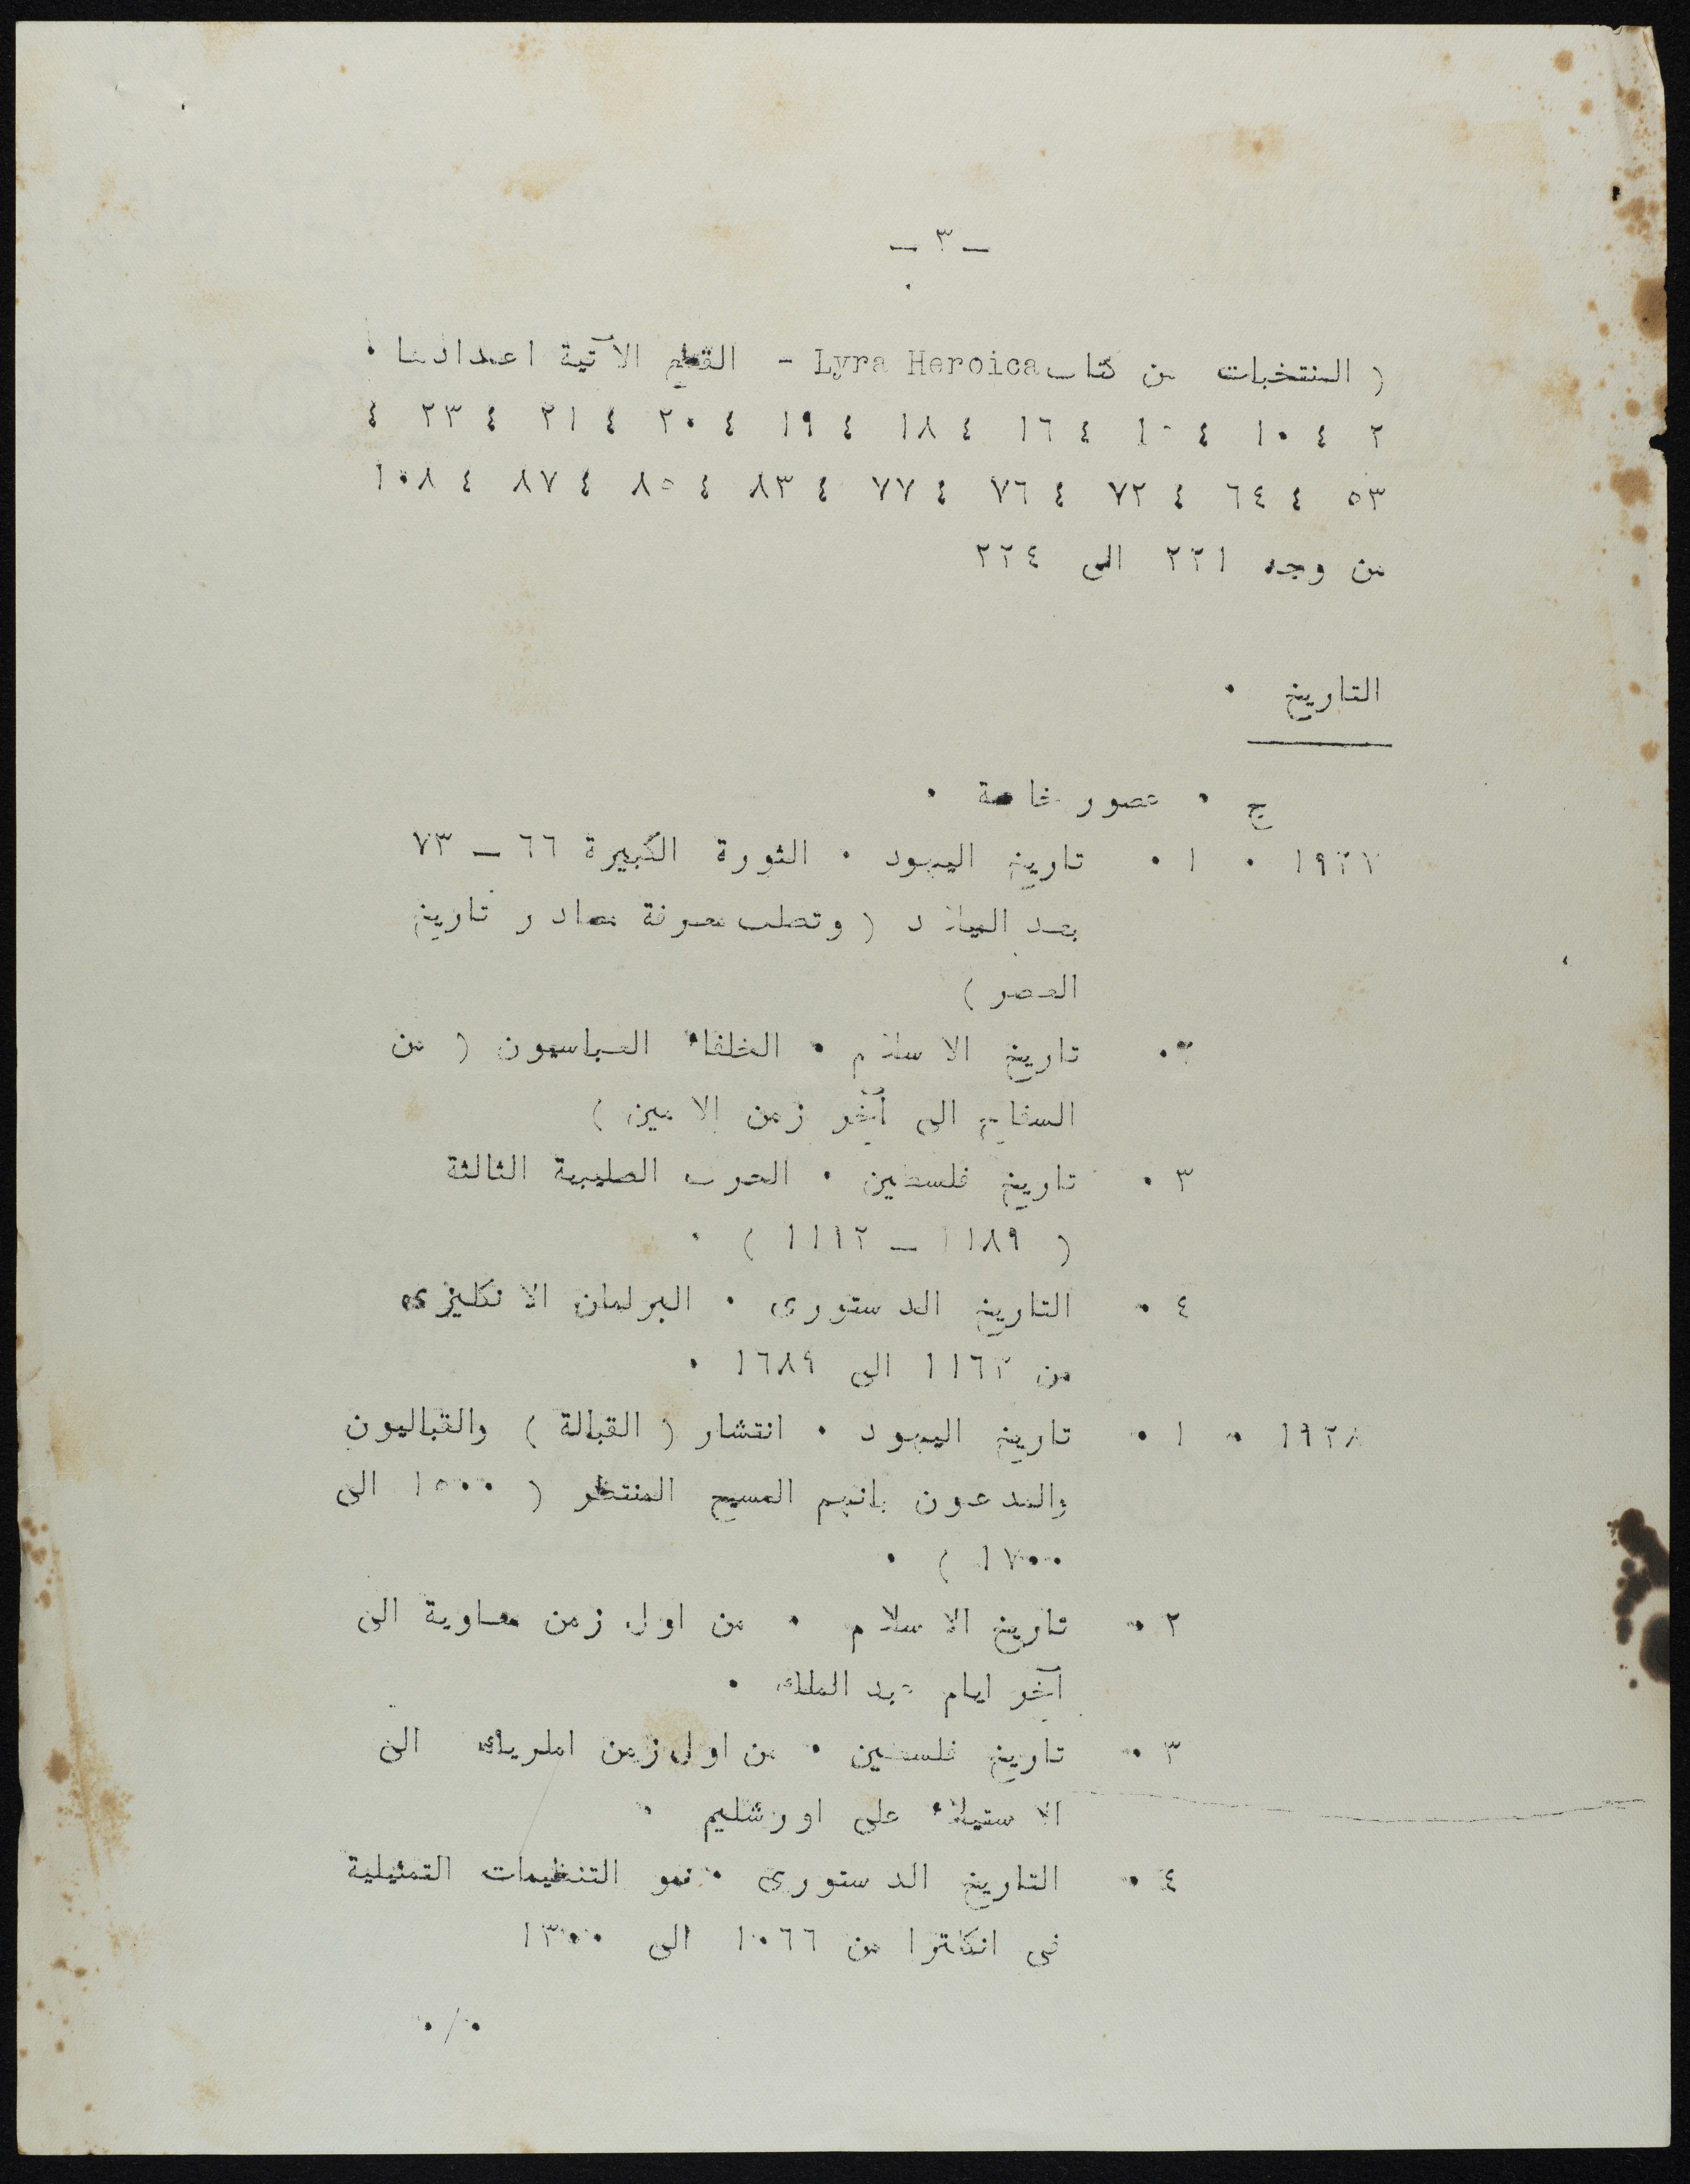 ـ ٣ ـ
( المنتخبات من كتاب Lyra Heroica - القطع الآتية اعدادها .
٢ ٤ ١٠ ٤ ١٥ ٤ ١٦ ٤ ١٨ ٤ ١٩ ٤ ٢٠ ٤ ٢١ ٤ ٢٣ ٤
٥٣ ٤ ٦٤ ٤ ٧٢ ٤ ٧٦ ٤ ٧٧ ٤ ٨٣ ٤ ٨٥ ٤ ٨٧ ٤ ١٠٨
من وجه ٢٢١ الى ٢٢٤
التاريخ .
ج . عصور خاصة .
١٩٢٧ . ١ . تاريخ اليهود . الثورة الكبيرة ٦٦ ـ ٧٣
بعد الميلاد ( وتطلب معرفة مصادر تاريخ
العصر )
٢ . تاريخ الاسلام . الخلفاء العباسيون ( من
السفاح الى آخر زمن الامين )
٣ . تاريخ فلسطين . الحرب الصليبية الثالثة
( ١١٨٩ ـ ١١٩٢ ) .
٤ . التاريخ الدستورى . البرلمان الانكليزى
من ١١٦٢ الى ١٦٨٩ .
١٩٢٨ . ١ . تاريخ اليهود . انتشار ( القبالة ) والقباليون
والمدعون بانهم المسيح المنتظر ( ١٥٠٠ الى
١٧٠٠ ) .
٢ . تاريخ الاسلام . من اول زمن معاوية الى
آخر ايام عبد الملك .
٣ . تاريخ فلسطين . من اول زمن املريك الى
الاستيلاء على اورشليم .
٤ . التاريخ الدستورى . نمو التنظيمات التمثيلية
فى انكلترا من ١٠٦٦ الى ١٣٠٠
./.